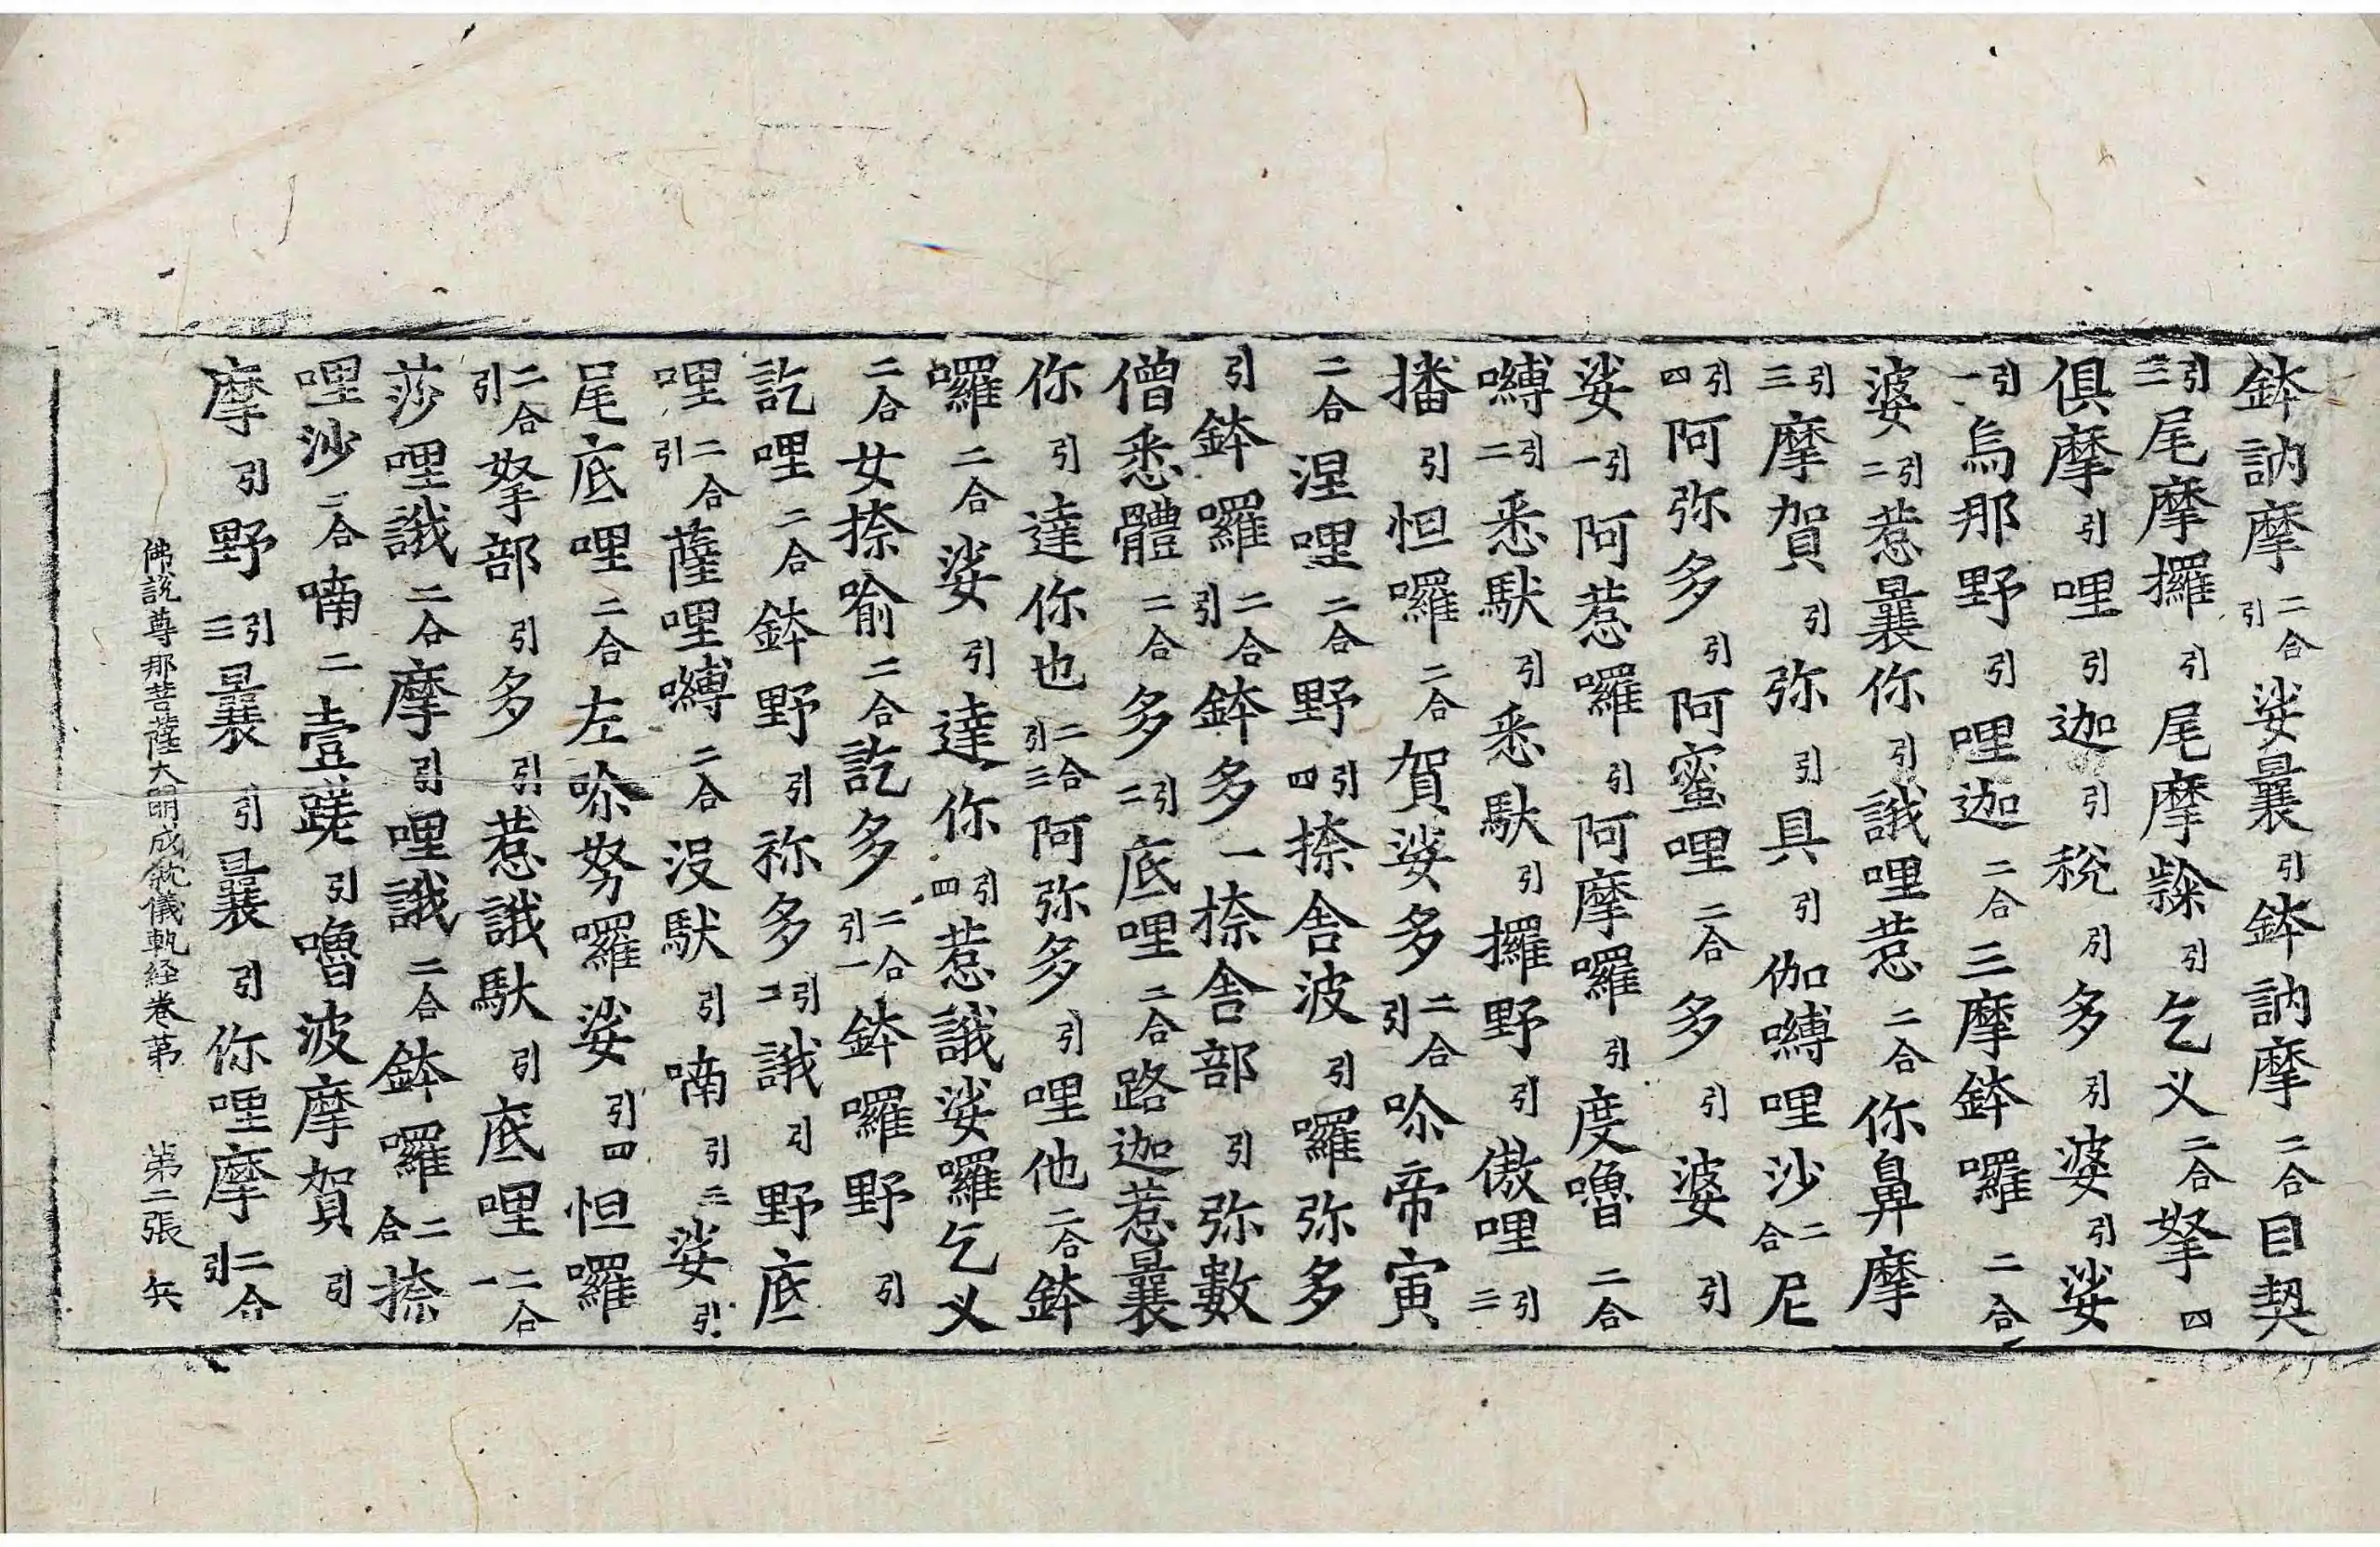 鉢訥摩二合引娑曩引鉢訥摩二合目契
引三尾摩攞引尾摩㰆引乞义二合拏四
俱摩引哩引迦引稅引多引婆引娑
引一烏那野引哩迦二合三摩鉢囉二合
婆引二惹曩你引誐哩惹二合你鼻摩
引三摩賀引弥引具引伽嚩哩沙二合尼
引四阿弥多引阿蜜哩二合多引婆引
娑引一阿惹囉引阿摩囉引度嚕二合
嚩引二悉馱引悉馱引攞野引傲哩引三
播引怛囉二合賀娑多二合引唦帝寅
二合涅哩二合野引四捺舍波引囉弥多
引鉢囉二合引鉢多一捺舍部引弥數
僧悉體二合多引二底哩二合路迦惹曩
你引達你也二合引三阿弥多引哩他二合鉢
囉二合娑引達你引四惹誐娑囉乞义
二合女捺喻二合訖多二合引一鉢囉野引
訖哩二合鉢野引祢多引二誐引野底
哩二合引薩哩嚩二合没馱引喃引三娑引
尾底哩二合左唦努囉娑引四怛囉
二合引拏部引多引惹誐馱引底哩二合一
莎哩誐二合摩引哩誐二合鉢囉二合捺
哩沙二合喃二壹蹉引嚕波摩賀引
摩引野引三曩引曩引你哩摩二合引
佛說尊那菩薩大明成就儀軌経卷第 第二張 兵